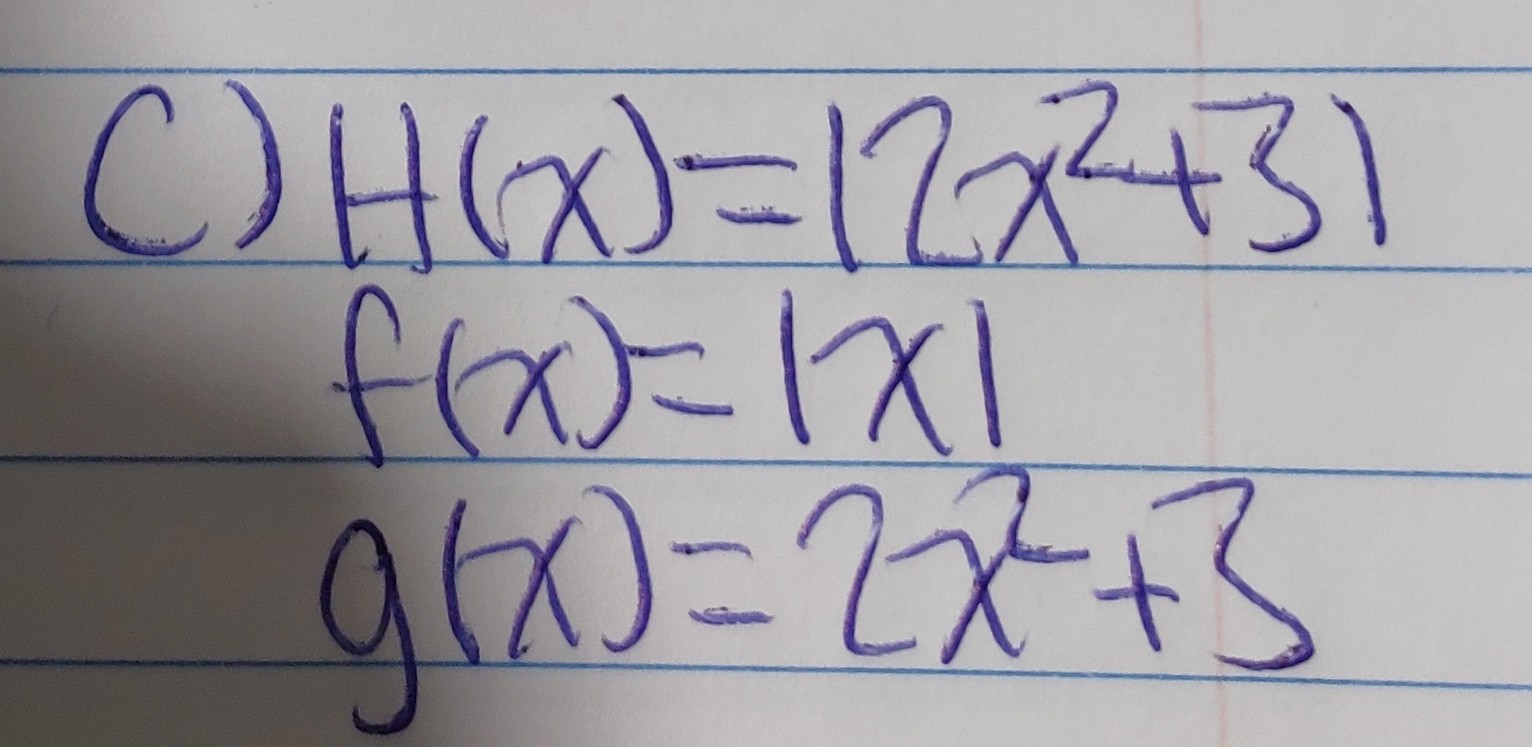 C) H(x)=|2x²+3|
f(x)=|x|
g(x)=2x²+3